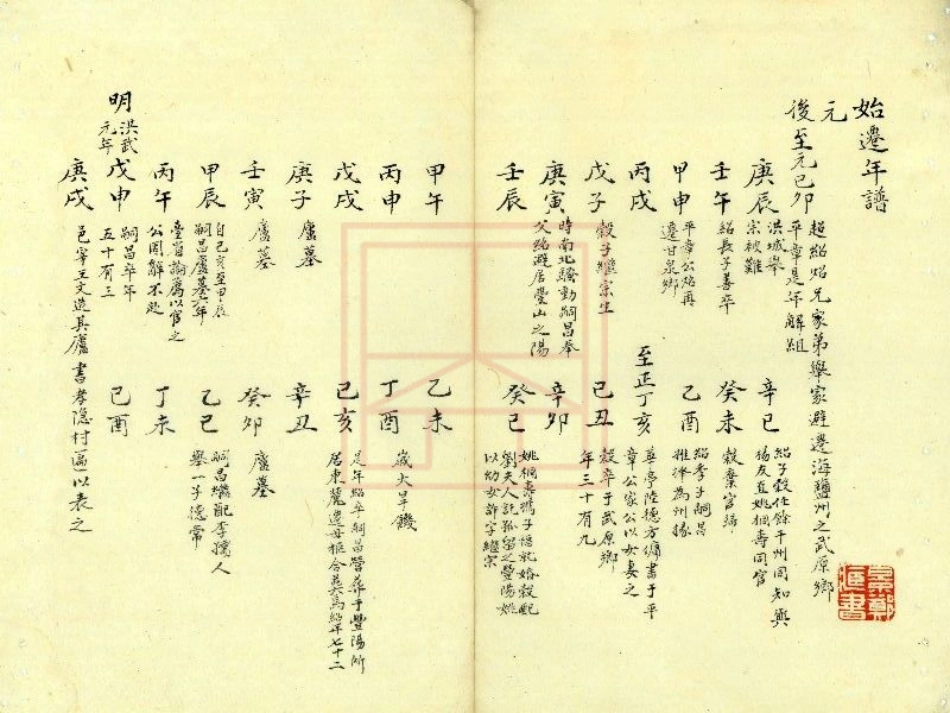 始遷年譜
元
後至元己卯
超紹焰兄家弟舉家避遷海鹽州之武原鄉
平章是年解組
庚辰
洪城舉
宗被難
辛巳
紹子穀任餘干州同知與
楊友直姚桐壽同官
壬午
紹長子善卒
癸未
穀棄官歸
甲申
平章公焰再
遷甘泉鄉
乙酉
紹季子嗣昌
推擇為州掾
丙戌
至正丁亥
華亭陸德方傭書于平
章公家公以女妻之
戊子
穀子繼宗生
己丑
穀卒于武原鄉
年三十有九
庚寅
時南北騷動嗣昌奉
父紹避居豐山之陽
辛卯
壬辰
癸巳
姚桐壽攜子隱就婚穀配
劉夫人託孤留之豐陽姚
以幼女許字繼宗
甲午
乙未
丙申
丁酉
歲大旱饑
戊戌
己亥
是年紹卒嗣昌營葬于豐陽所
居東麓遷母柩合葬焉紹年七十二
庚子
廬墓
辛丑
壬寅
廬墓
癸卯
廬墓
甲辰
自己亥至甲辰
嗣昌廬墓六年
乙巳
嗣昌繼配李孺人
舉一子德常
丙午
臺省論薦以官之
公固辭不起
丁未
明
洪武
元年
戊申
嗣昌卒年
五十有三
己酉
庚戌
邑宰王文造其廬書孝隱村一區以表之